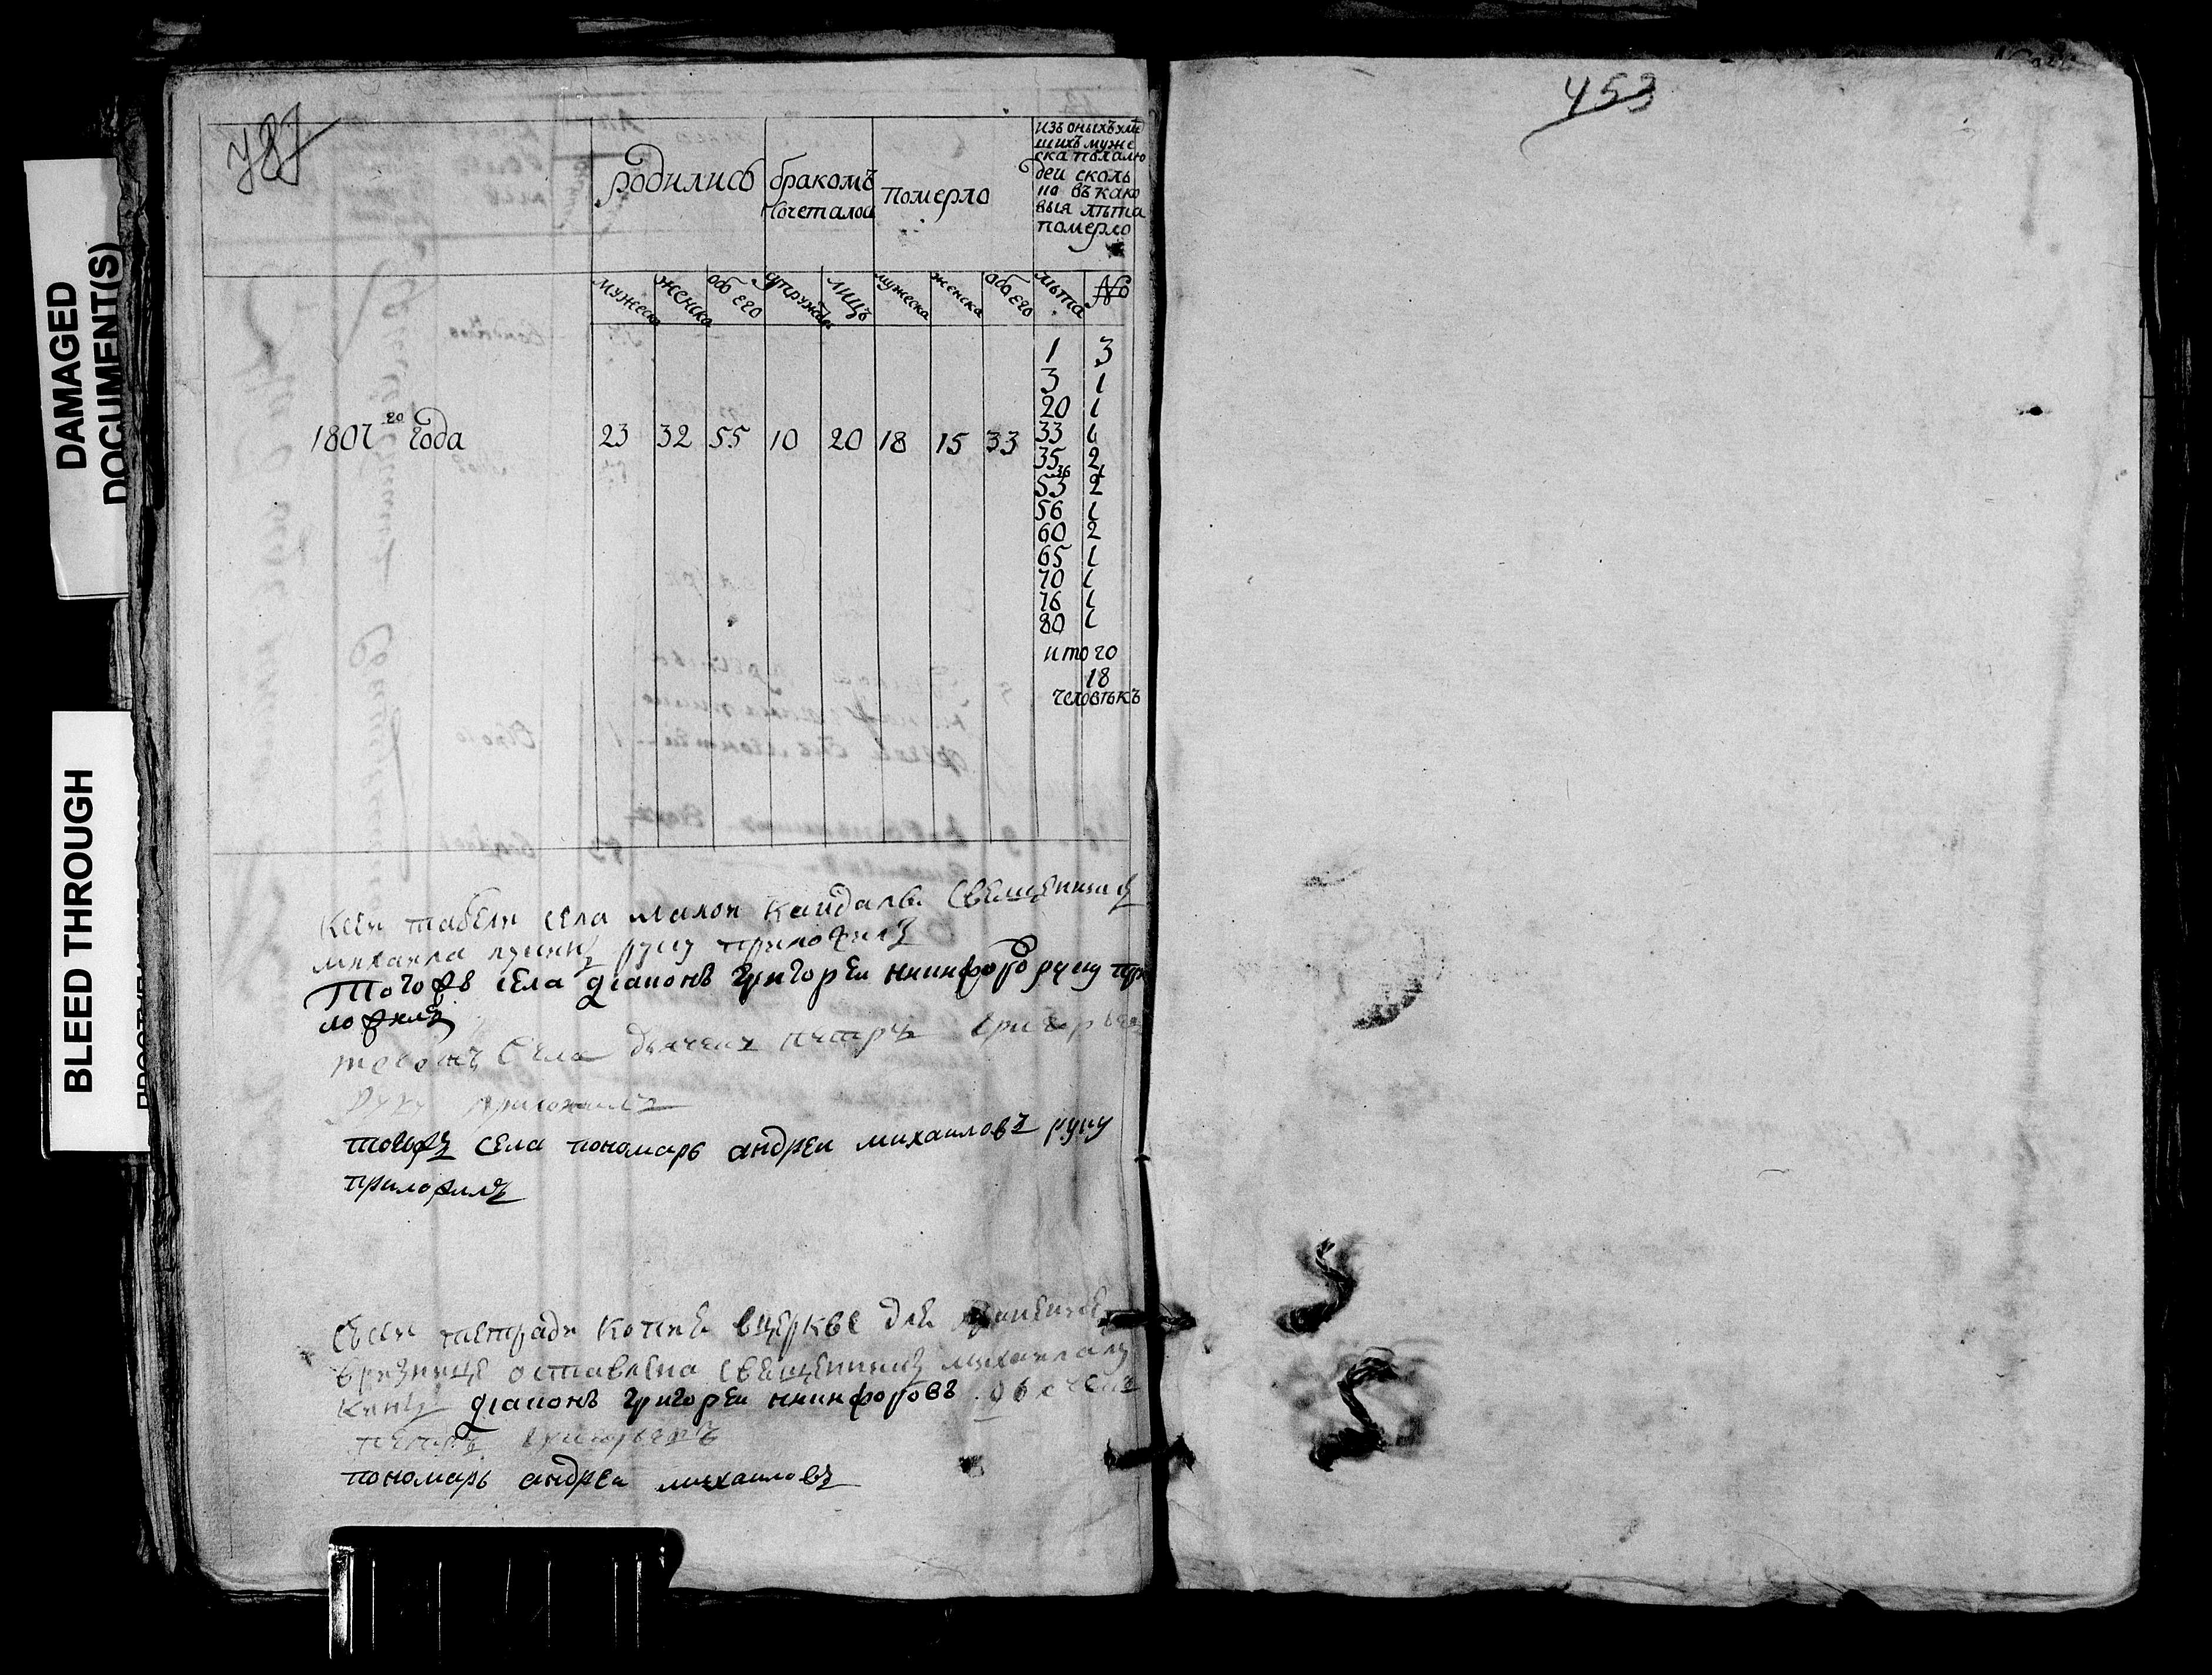 DAMAGED
DOCUMENT(S)
BLEED THROUGH
487
453
родились
бракомъ
сочеталос
померло
изъ оныхъ
шихъ муже
ска пола лю
деи сколь
ко въ како
выя лѣта
померло
мужеска женска обоего супружѣв лицъ мужеска женска обоего лѣта №
1807 го года 23 32 55 10 20 18 15 33
1 3
3 1
20 1
33 1
35 2
36 1
53 2
56 1
60 2
65 1
70 1
76 1
80 1
итого
18
человѣкъ
Ксеи табели села малои Кандалы Священникъ
михаила лукинъ руку приложилъ
Тогожъ села діаконъ григореи никифоро руку при
ложилъ
тогожъ села дьячекъ петръ григорьев
руку приложилъ
тогожъ села пономарь андреи михаиловъ руку
приложилъ
Сьсеи тетради Копие вцеркве для
вризнице оставлена Священникъ михаила лу
кинъ діаконъ григореи никифоровъ дьячекъ
петръ григорьевъ
пономарь андреи михаиловъ